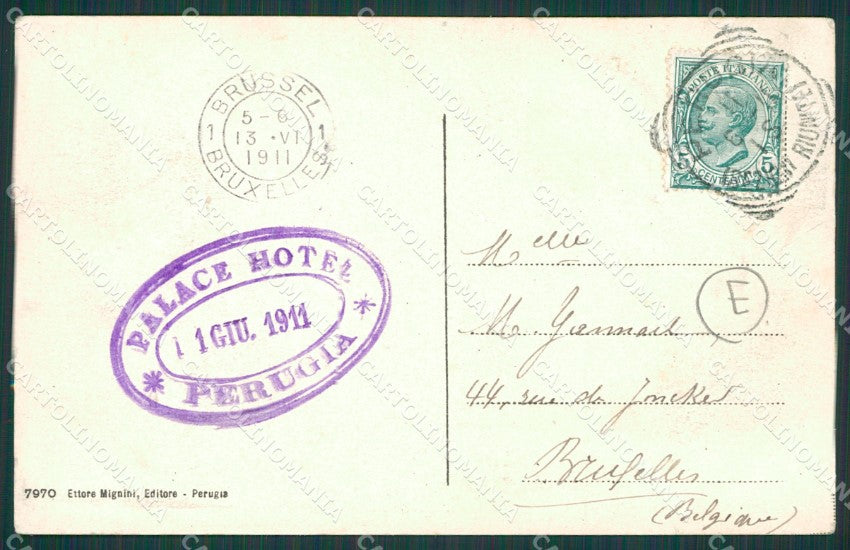 BRUSSEL
5-6
13 VI
1911
1 1
BRUXELLES
PALACE HOTEL
11 GIU. 1911
* PERUGIA *
POSTE ITALIANE
5 CENTESIMI 5
RIUNITE)
Melle
M.
E
44, rue de Joncker
Bruxelles
(Belgique)
7970 Ettore Mignini, Editore - Perugia
CARTOLINOMANIA